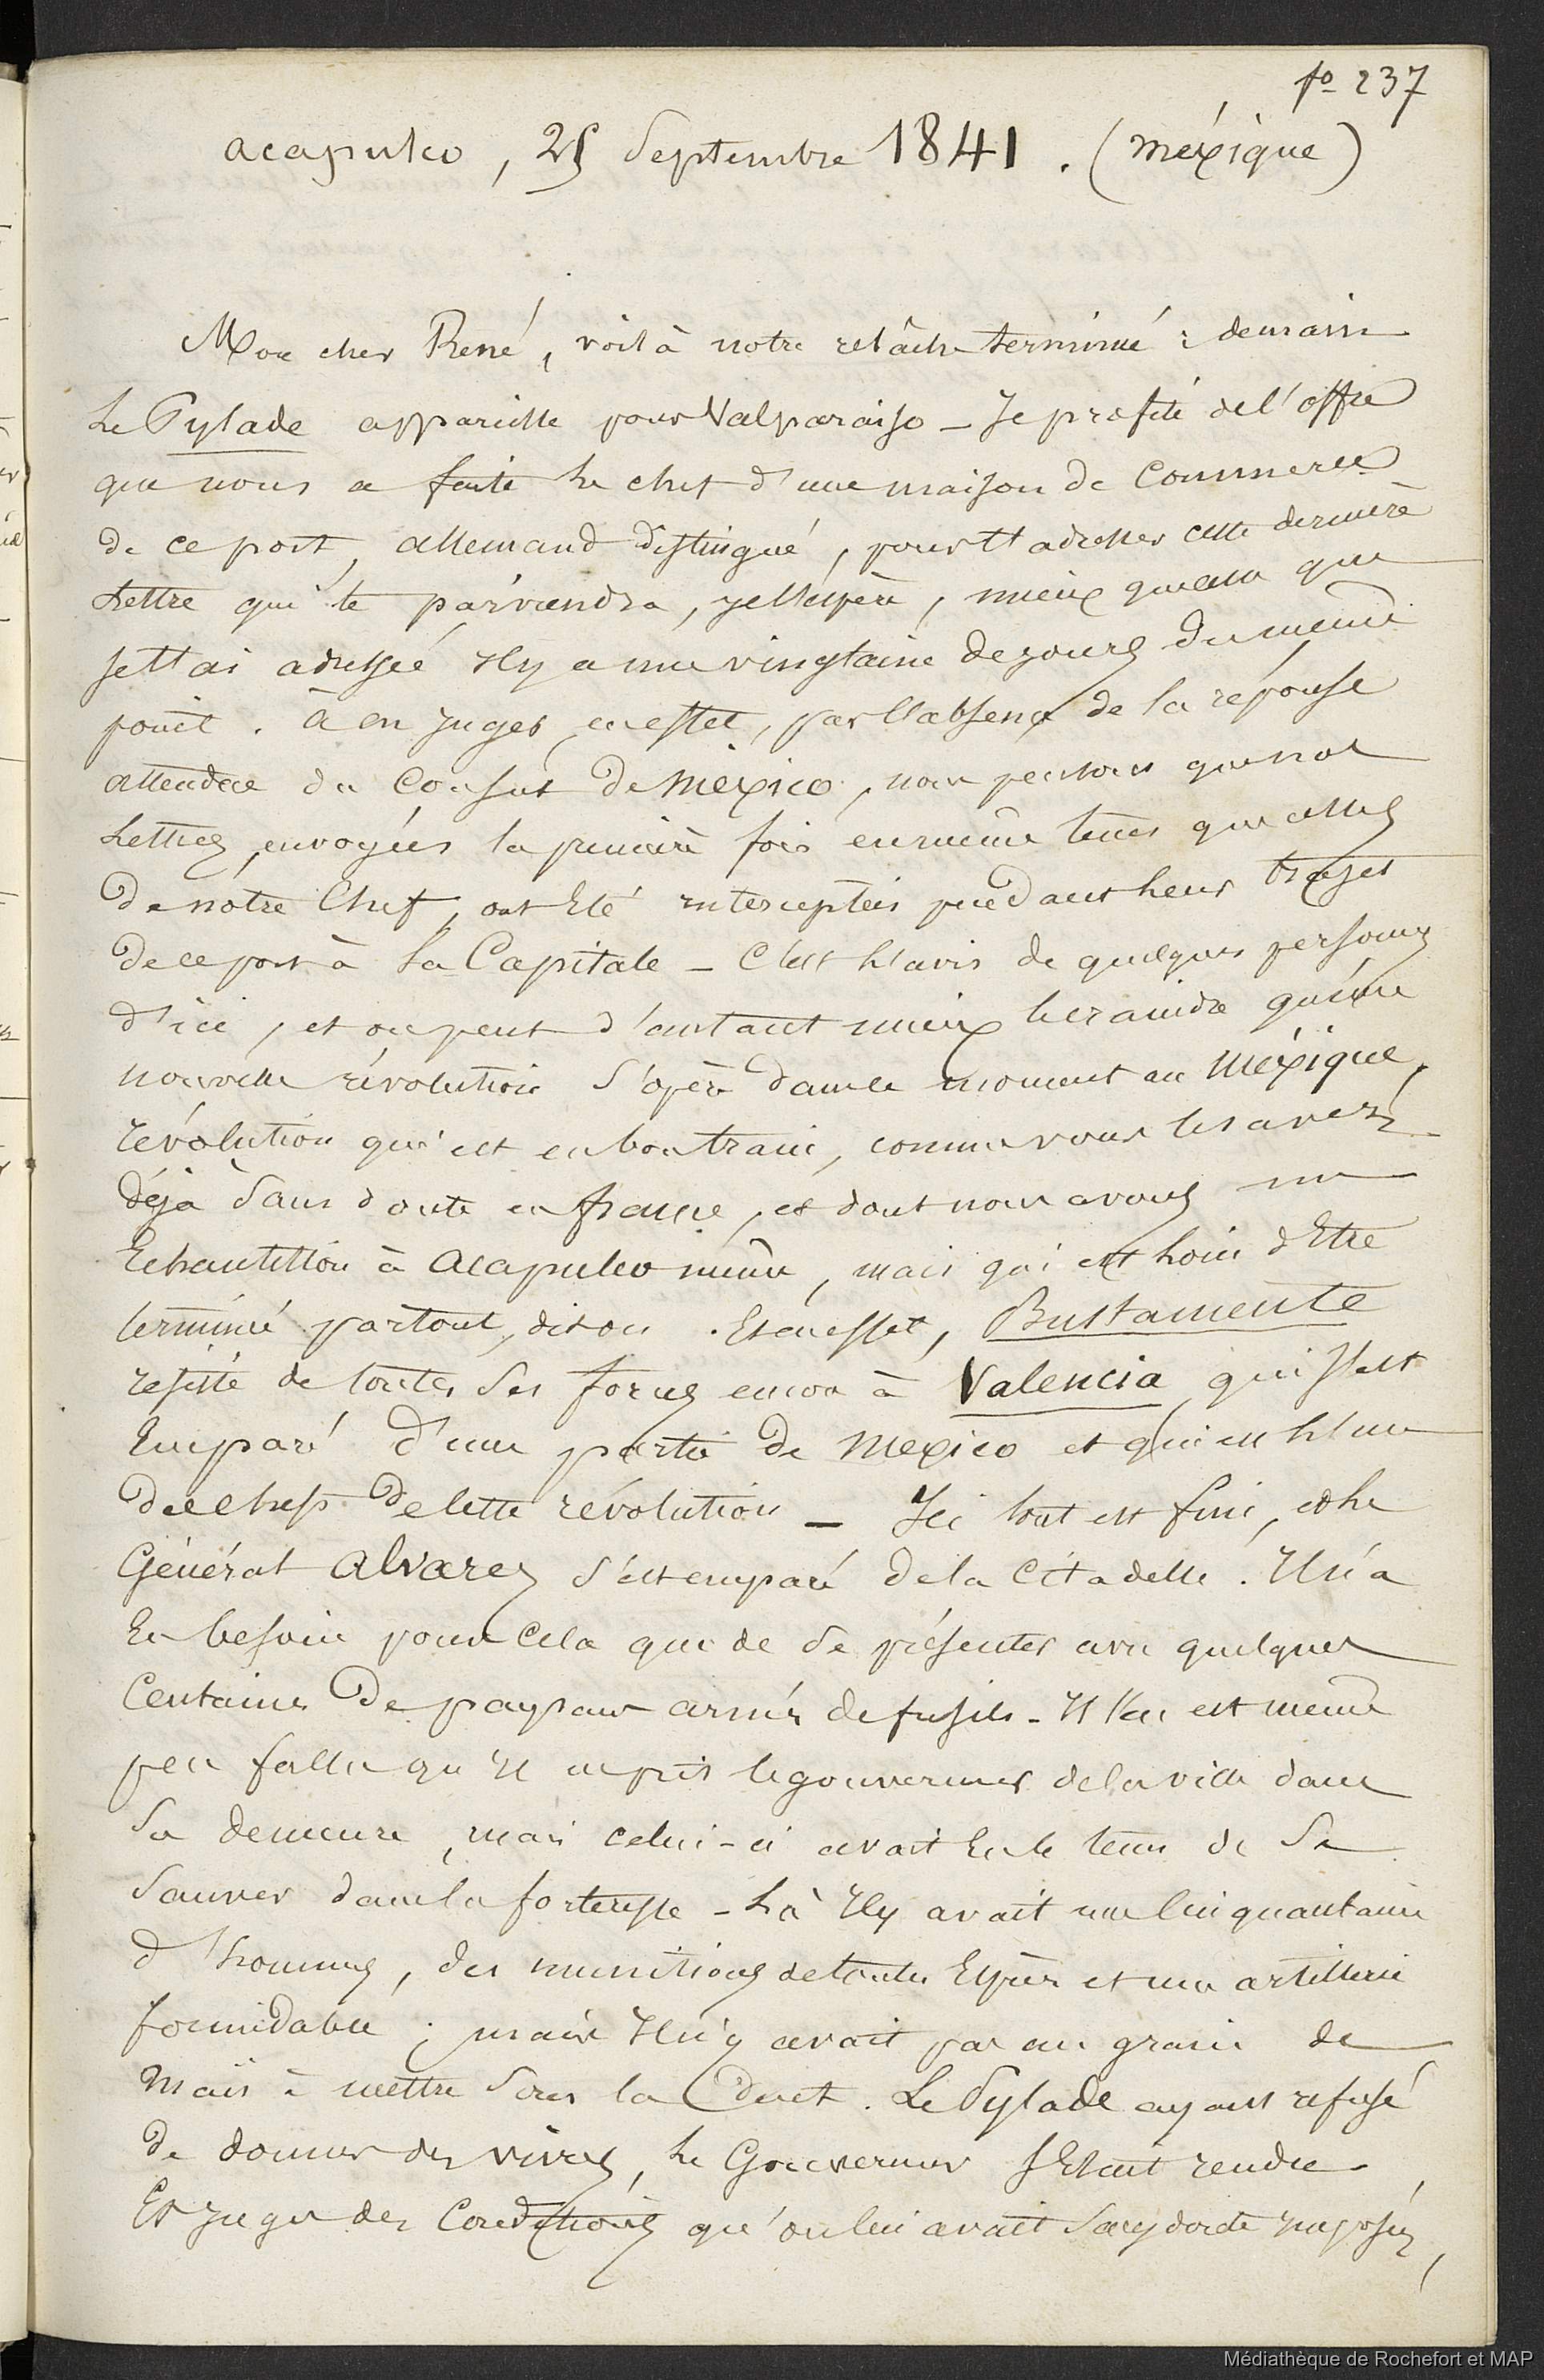 fo 237
acapulco, 25 Septembre 1841. (méxique)
Mon cher René, voilà notre relâche terminé : demain
Le Pylade appareille pour Valparaiso – Je profite de l'offre
que nous a faite le chef d'une maison de Commerce
de ce port, allemand distingué, pour t'adresser cette dernière
Lettre qui te parviendra, je l'espère, mieux que celle que
je t'ai adressée Il y a une vingtaine de jours du même
point. à en juger, en effet, par l'absence de la réponse
attendue du Consul de México, nous pensons que nos
Lettres, envoyées la première fois en même tems que celles
De nôtre Chef, ont Eté interceptées pendant leur trajet
de ce port à La Capitale – C'est l'avis de quelques personnes
d'ici, et on peut d'autant mieux le craindre qu'une
nouvelle révolution s'opère dans ce moment au Méxique,
révolution qui est en bon train, comme vous le savez
déjà sans doute en france, et dont nous avons un
Echantillon à Acapulco même, mais qui est loin d'Etre
terminé partout, dit-on. Et en effet, Bustamente
resiste de toutes ses forces encor à Valencia qui s'est
Emparé d'une partie de Mexico et qui est l'un
des chefs de cette révolution – Ici tout est fini, et le
Général Alvarez s'est emparé de la Citadelle. Il n'a
Eu besoin pour cela que de se présenter avec quelques
Centaines De paysans armés de fusils – Il s'en est même
peu fallu qu'il ne prit le gouverneur de la ville dans
Sa demeure, mais celui-ci avait Eu le tems de Se
Sauver dans la forteresse – Là Il y avait une Cinquantaine
d'hommes, des munitions de toutes Espèces et une artillerie
formidable ; mais Il n'y avait pas un grain de
Maïs à mettre Sous la Dent. Le Pylade ayant refusé
De donner des vivres, Le Gouverneur s'Etait rendu
Et juger des Conditions qu'on lui avait Sans doute imposées,
Médiathèque de Rochefort et MAP